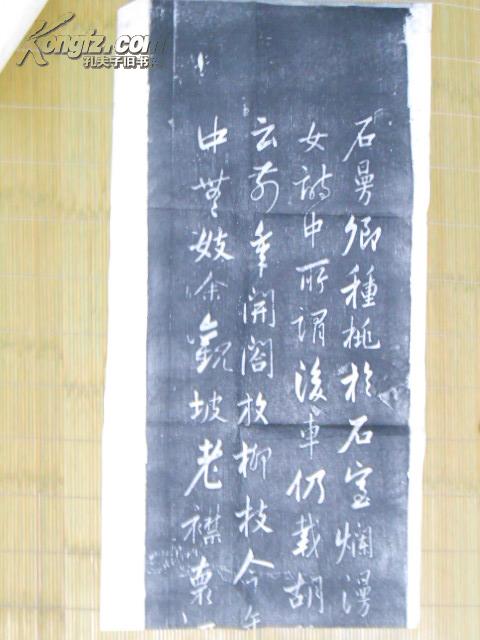 Kongfz.com
孔夫子旧书
石曼卿種桃於石室爛漫
女詩中所謂後車仍載胡
云前年開閤放柳枝今年
中無妓余觀坡老襟懷